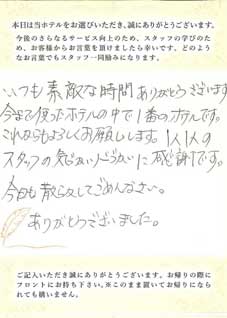 本日は当ホテルをお選びいただき、誠にありがとうございます。
今後のさらなるサービス向上のため、スタッフの学びのため、お客様からお言葉を頂けましたら幸いです。どのようなお言葉でもスタッフ一同励みになります。
いつも素敵な時間ありがとうございます
今まで使ったホテルの中で1番のホテルです。
これからもよろしくお願いします。1人1人の
スタッフの気づかい心づかいに感謝です。
今日も散らかしてごめんなさい。
ありがとうございました。
ご記入いただき誠にありがとうございます。お帰りの際に
フロントにお持ち下さい。※このまま置いてお帰りになら
れても構いません。